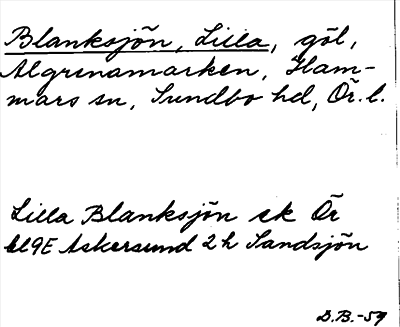 Blanksjön, Lilla, göl,
Älgrenamarken, Ham-
mars sn, Sundbo hd, Ör. l.
Lilla Blanksjön ek Ör
bl 9E Askersund 2 h Sandsjön
D.B.-59